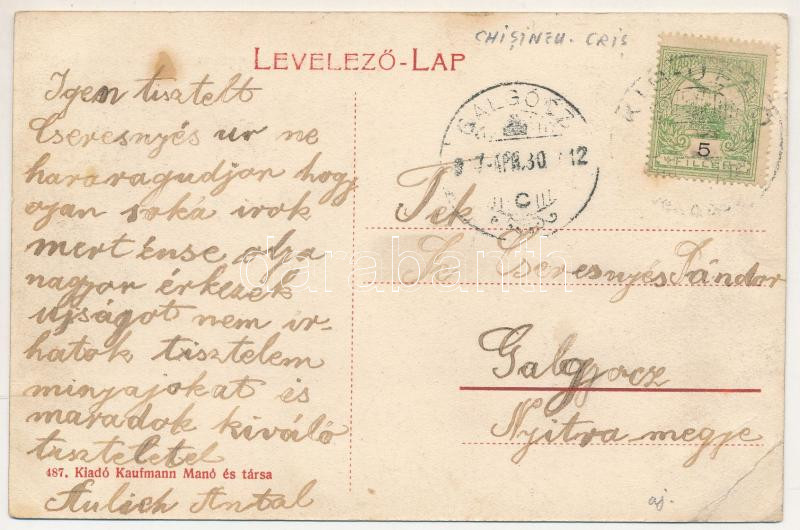 CHIȘINEU-CRIȘ
LEVELEZŐ-LAP
Igen tisztelt
Cseresnyés ur ne
hararagudjon hogy
ojan soká irok
mert énse olja
nagyon érkezék
ujságot nem ir-
hatok tisztelem
minyajokat és
maradok kiváló
tisztelettel
Aulich Antal
487. Kiadó Kaufmann Manó és társa
GALGÓCZ
APR. 30
12
C
5
FILLÉR
Tek
Cseresnyés Sándor
Galgocz
Nyitra megje
aj.
darabanth